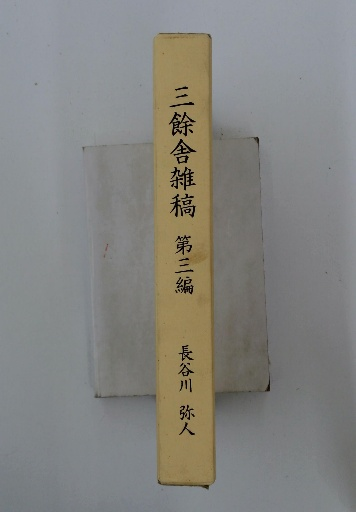 三餘舎雑稿 第三編 長谷川 弥人